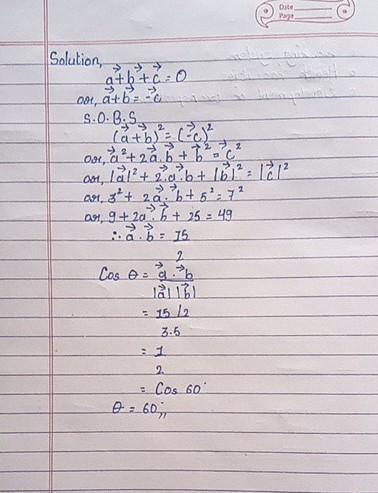 Date
Page
Solution,
a⃗+b⃗+c⃗=0
or, a⃗+b⃗=-c⃗
S.O.B.S.
(a⃗+b⃗)²=(-c⃗)²
or, a⃗²+2a⃗.b⃗+b⃗²=c⃗²
or, |a⃗|²+2.a⃗.b⃗+|b⃗|²=|c⃗|²
or, 3²+2a⃗.b⃗+5²=7²
or, 9+2a⃗.b⃗+25=49
∴ a⃗.b⃗=15
2
Cos θ = a⃗.b⃗
|a⃗||b⃗|
= 15/2
3.5
= 1
2
= Cos 60°
θ = 60°,,